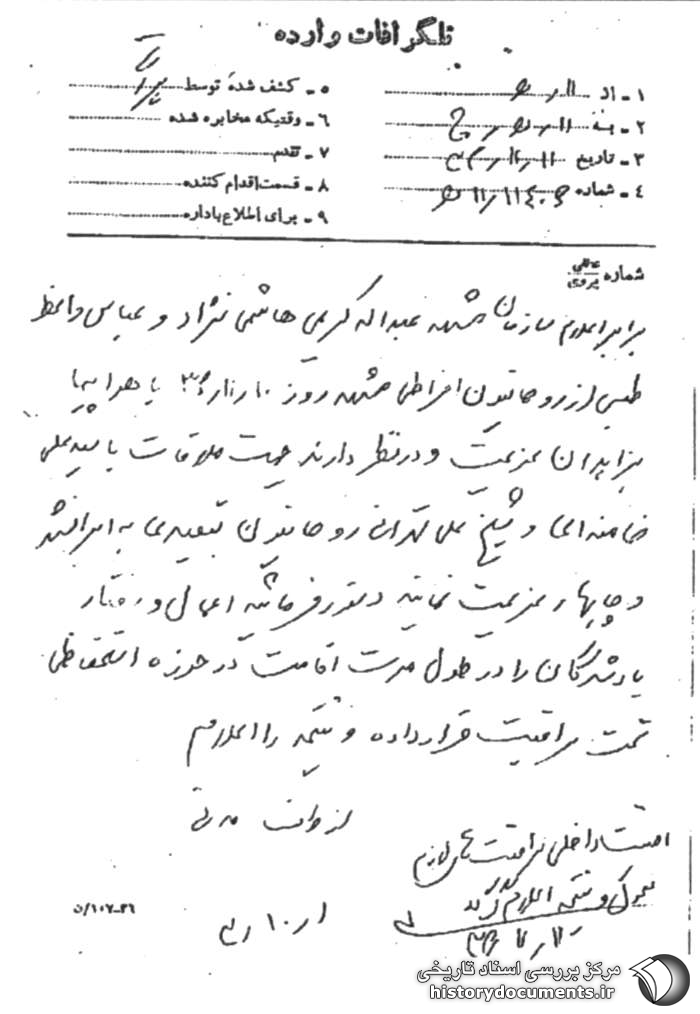 تلگرافات وارده
۱ - از
۲ - به
۳ - تاریخ
۴ - شماره
۵ - کشف شده توسط
۶ - وقتیکه مخابره شده
۷ - تقدم
۸ - قسمت اقدام کننده
۹ - برای اطلاع باداره
شماره عطفی پیروی
برابر اعلام سازمان مشهد عبداله کریمی هاشمی نژاد و عباس واعظ
طبسی از روحانیون افراطی مشهد روز با هواپیما
بزاهدان عزیمت و در نظر دارند جهت ملاقات با سید علی
خامنه‌ای و شیخ علی تهرانی روحانیون تبعیدی به ایرانشهر
و چابهار عزیمت نمایند دستور فرمائید اعمال و رفتار
یادشدگان را در طول مدت اقامت در حوزه استحفاظی
تحت مراقبت قرار داده و نتیجه را اعلام
امنیت داخلی مراقبت‌های لازم
معمول و نتیجه اعلام گردد
۱۰۷-۲۶/ن
مرکز بررسی اسناد تاریخی
historydocuments.ir